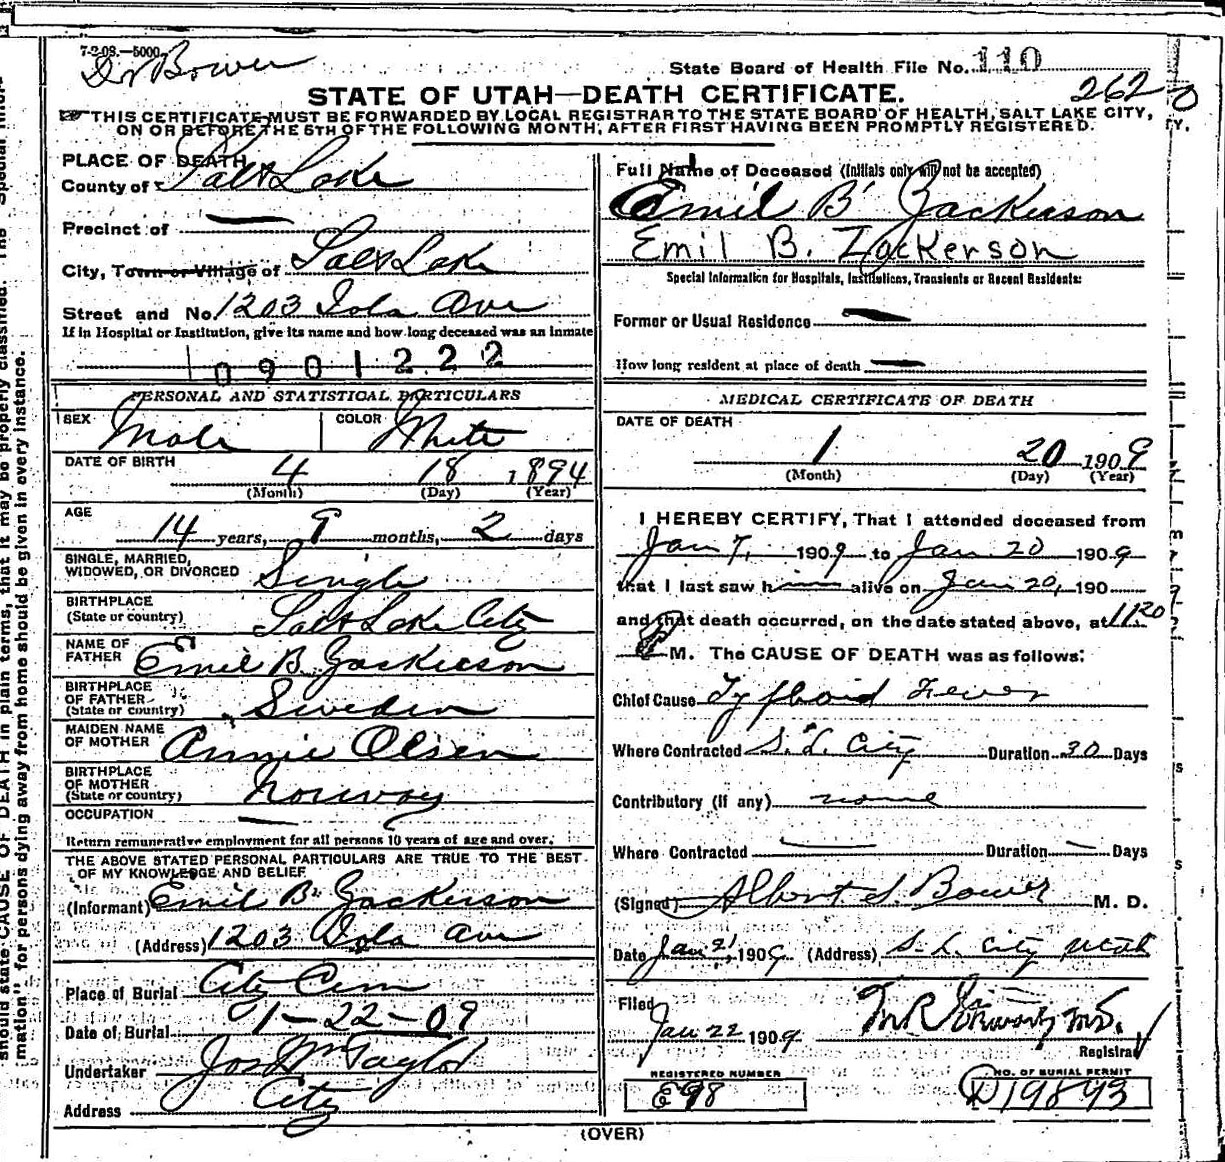 7-2-08.—5000
Dr Bower
State Board of Health File No. 110
262
STATE OF UTAH—DEATH CERTIFICATE.
THIS CERTIFICATE MUST BE FORWARDED BY LOCAL REGISTRAR TO THE STATE BOARD OF HEALTH, SALT LAKE CITY,
ON OR BEFORE THE 5TH OF THE FOLLOWING MONTH, AFTER FIRST HAVING BEEN PROMPTLY REGISTERED.
PLACE OF DEATH
County of Salt Lake
Precinct of —
City, Town or Village of Salt Lake
Street and No. 1203 Iola Ave
If in Hospital or Institution, give its name and how long deceased was an inmate
0901222
PERSONAL AND STATISTICAL PARTICULARS
SEX Male COLOR White
DATE OF BIRTH 4 18 1894
(Month) (Day) (Year)
AGE
14 years, 9 months, 2 days
SINGLE, MARRIED,
WIDOWED, OR DIVORCED Single
BIRTHPLACE
(State or country) Salt Lake City
NAME OF
FATHER Emil B. Zackerson
BIRTHPLACE
OF FATHER
(State or country) Sweden
MAIDEN NAME
OF MOTHER Annie Olsen
BIRTHPLACE
OF MOTHER
(State or country) Norway
OCCUPATION —
Return remunerative employment for all persons 10 years of age and over.
THE ABOVE STATED PERSONAL PARTICULARS ARE TRUE TO THE BEST
OF MY KNOWLEDGE AND BELIEF
(Informant) Emil B. Zackerson
(Address) 1203 Iola Ave
Place of Burial City Cem
Date of Burial 1-22-09
Undertaker Jos Wm Taylor
Address City
Full Name of Deceased (Initials only will not be accepted)
Emil B. Zackerson
Emil B. Zackerson
Special Information for Hospitals, Institutions, Transients or Recent Residents:
Former or Usual Residence —
How long resident at place of death —
MEDICAL CERTIFICATE OF DEATH
DATE OF DEATH
1 20 1909
(Month) (Day) (Year)
I HEREBY CERTIFY, That I attended deceased from
Jan 7, 1909 to Jan 20 1909
that I last saw him alive on Jan 20, 190
and that death occurred, on the date stated above, at 11 20
P M. The CAUSE OF DEATH was as follows:
Chief Cause Typhoid Fever
Where Contracted S. L. City Duration 30 Days
Contributory (If any) none
Where Contracted — Duration — Days
(Signed) Albert S. Bower M. D.
Date Jan 21 1909 (Address) S. L. City Utah
Filed
Jan 22 1909
Registrar
REGISTERED NUMBER
E98
NO. OF BURIAL PERMIT
D19843
(OVER)
should state CAUSE OF DEATH in plain terms, that it may be properly classified. The "Special Infor-
mation" for persons dying away from home should be given in every instance.